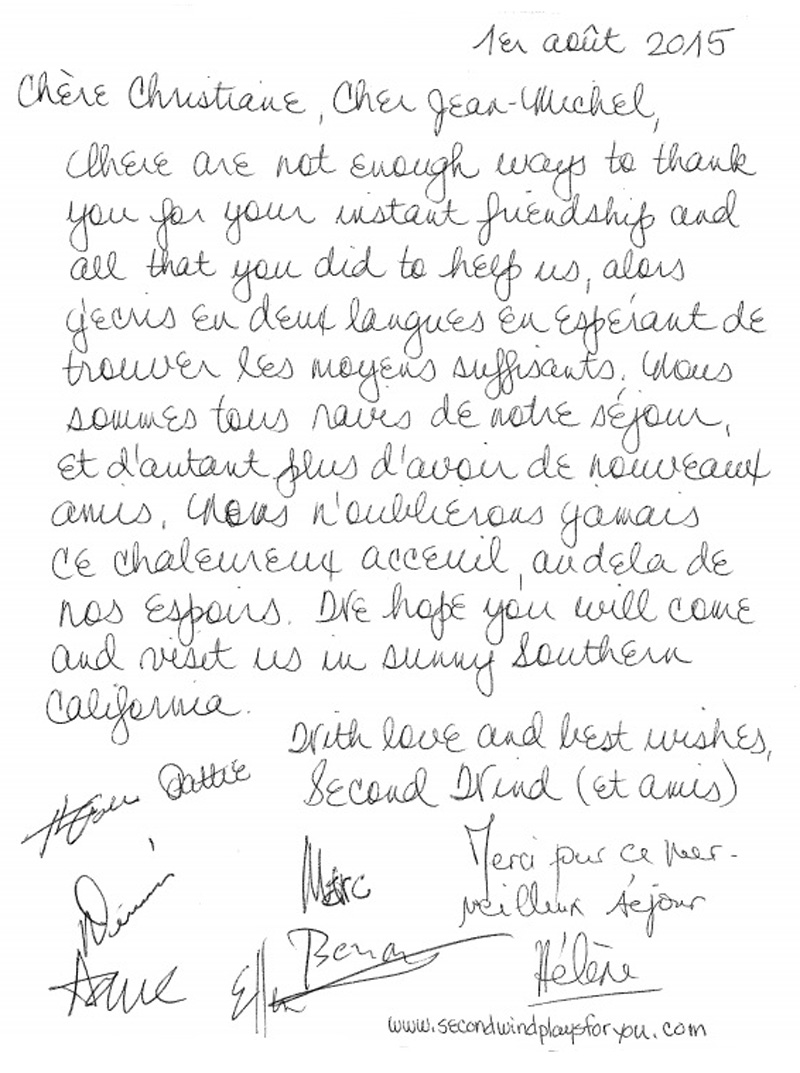 1er août 2015
Chère Christiane, Cher Jean-Michel,
There are not enough ways to thank
you for your instant friendship and
all that you did to help us, alors
j'ecris en deux langues en espérant de
trouver les moyens suffisants. Nous
sommes tous ravis de notre séjour,
et d'autant plus d'avoir de nouveaux
amis. Nous n'oublierons jamais
ce chaleureux acceuil, au dela de
nos espoirs. We hope you will come
and visit us in sunny Southern
California.
With love and best wishes,
Second Wind (et amis)
Pattie
Marc
Merci pour ce mer-
veilleux séjour
Anne
Ellen
Hélène
www.secondwindplaysforyou.com